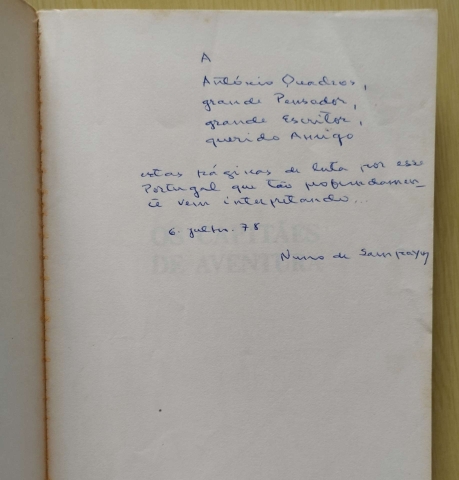 A
António Quadros,
grande Pensador,
grande Escritor,
querido Amigo
estas páginas de luta por esse
Portugal que tão profundamen-
te vem interpretando...
6. julho. 78
Nuno de Sampayo
DE AVENTURA